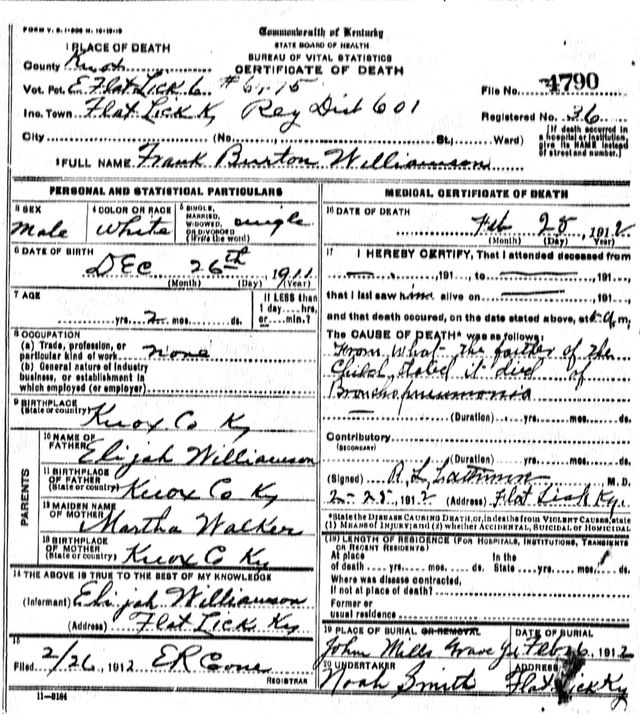 FORM V. S. 1-
Commonwealth of Kentucky
STATE BOARD OF HEALTH
BUREAU OF VITAL STATISTICS
CERTIFICATE OF DEATH
1 PLACE OF DEATH
County Knox
Vot. Pct. E Flat Lick 6 #6115
Ino. Town Flat Lick Ky Reg Dist 601
City (No. St.; Ward)
File No. 4790
Registered No. 36
[If death occurred in a hospital or institution, give its NAME instead of street and number.]
2 FULL NAME Frank Burton Williamson
PERSONAL AND STATISTICAL PARTICULARS
3 SEX
Male
4 COLOR OR RACE
White
5 SINGLE, MARRIED, WIDOWED, OR DIVORCED (Write the word)
single
6 DATE OF BIRTH
DEC 26th, 1911
(Month) (Day) (Year)
7 AGE
yrs. 2 mos. ds.
If LESS than 1 day....hrs. or....min.?
8 OCCUPATION
(a) Trade, profession, or particular kind of work none
(b) General nature of industry business, or establishment in which employed (or employer)
9 BIRTHPLACE
(State or country)
Knox Co Ky
PARENTS
10 NAME OF FATHER
Elijah Williamson
11 BIRTHPLACE OF FATHER
(State or country)
Knox Co Ky
12 MAIDEN NAME OF MOTHER
Martha Walker
13 BIRTHPLACE OF MOTHER
(State or country)
Knox Co Ky
14 THE ABOVE IS TRUE TO THE BEST OF MY KNOWLEDGE
(Informant) Elijah Williamson
(Address) Flat Lick Ky
15
Filed 2/26, 1912 ER Cone
REGISTRAR
11-8184
MEDICAL CERTIFICATE OF DEATH
16 DATE OF DEATH
Feb 25, 1912
(Month) (Day) (Year)
17 I HEREBY CERTIFY, That I attended deceased from
, 191 , to , 191 ,
that I last saw him alive on , 191 ,
and that death occured, on the date stated above, at m.
The CAUSE OF DEATH* was as follows:
From What the father of the
Child stated it died of
Bronchopneumonia
(Duration) yrs. mos. ds.
Contributory
(SECONDARY)
(Duration) yrs. mos. ds.
(Signed) R. L. M. D.
2-25, 1912 (Address) Flat Lick Ky.
*State the DISEASE CAUSING DEATH, or, in deaths from VIOLENT CAUSES, state (1) MEANS OF INJURY; and (2) whether ACCIDENTAL, SUICIDAL or HOMICIDAL
(18) LENGTH OF RESIDENCE (FOR HOSPITALS, INSTITUTIONS, TRANSIENTS OR RECENT RESIDENTS)
At place of death yrs. mos. ds. In the State yrs. mos. ds.
Where was disease contracted, if not at place of death?
Former or usual residence
19 PLACE OF BURIAL OR REMOVAL
John Mills Grave Yd
DATE OF BURIAL
Feb 26, 1912
20 UNDERTAKER
Noah Smith
ADDRESS
Flat Lick Ky